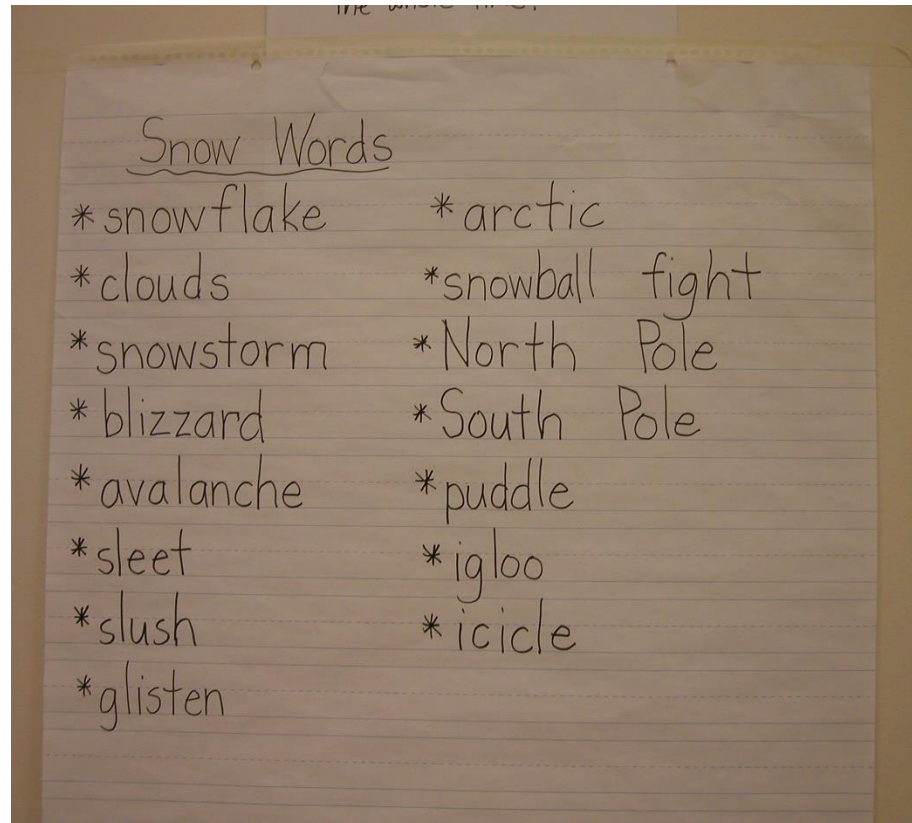 the whole time!
Snow Words
*snowflake
*clouds
*snowstorm
*blizzard
*avalanche
*sleet
*slush
*glisten
*arctic
*snowball fight
*North Pole
*South Pole
*puddle
*igloo
*icicle